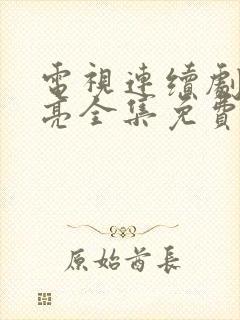 電視連續劇
亮全集免費
原始酋長